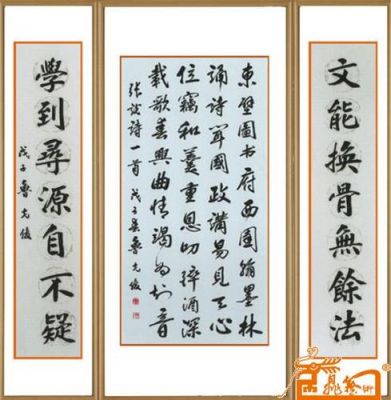 文能換骨無餘法
東壁圖书府西園翰墨林
誦诗闻國政講易見天心
位竊和羹重恩叨醉酒深
載歌春興曲情竭为知音
張說诗一首 戊子春魯
學到尋源自不疑
戊子魯